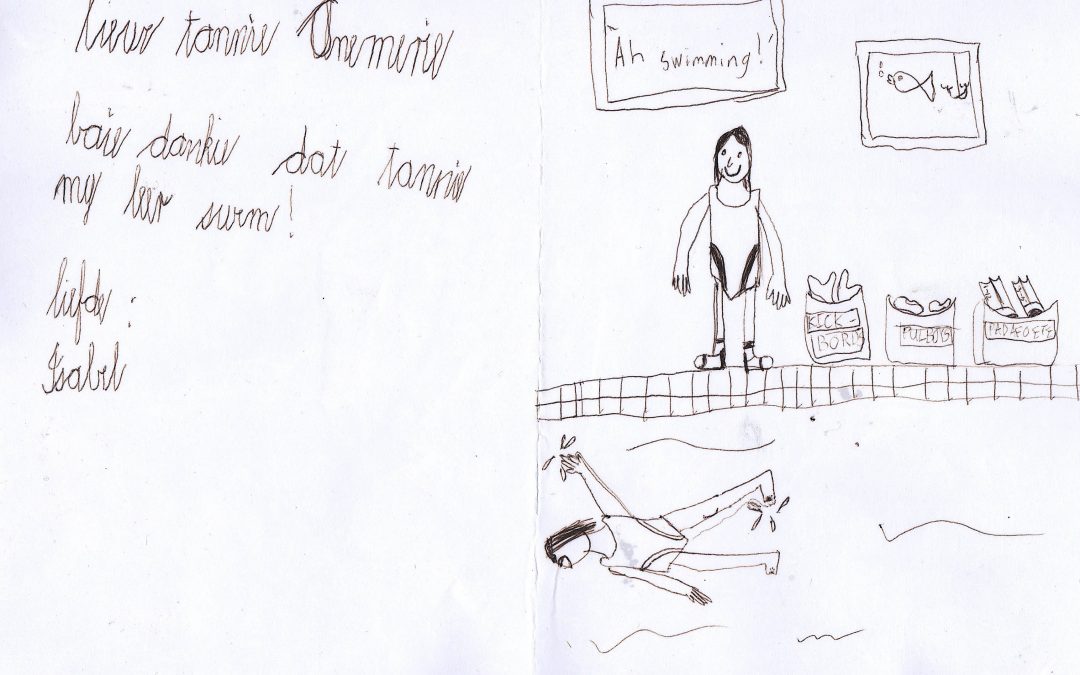 liewe tannie Onemerie
baie dankie dat tannie
my leer swem!
liefde :
Isabel
'Ah swimming!'
KICK-
BORDS